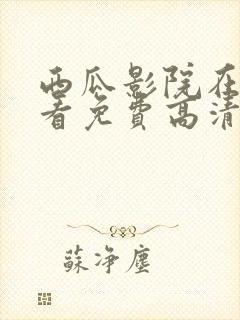 西瓜影院在
看免費高清
蘇净塵